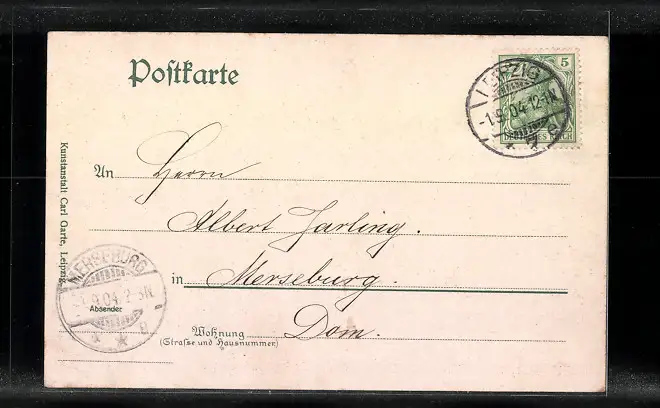 Postkarte
5
LEIPZIG
-1.9.04.12-1N.
DEUTSCHES REICH
An Herrn
Albert Jarling.
in Merseburg.
Wohnung Dom.
(Strasse und Hausnummer)
Kunstanstalt Carl Garte, Leipzig.
MERSEBURG
1.9.04. 2-3N
Absender